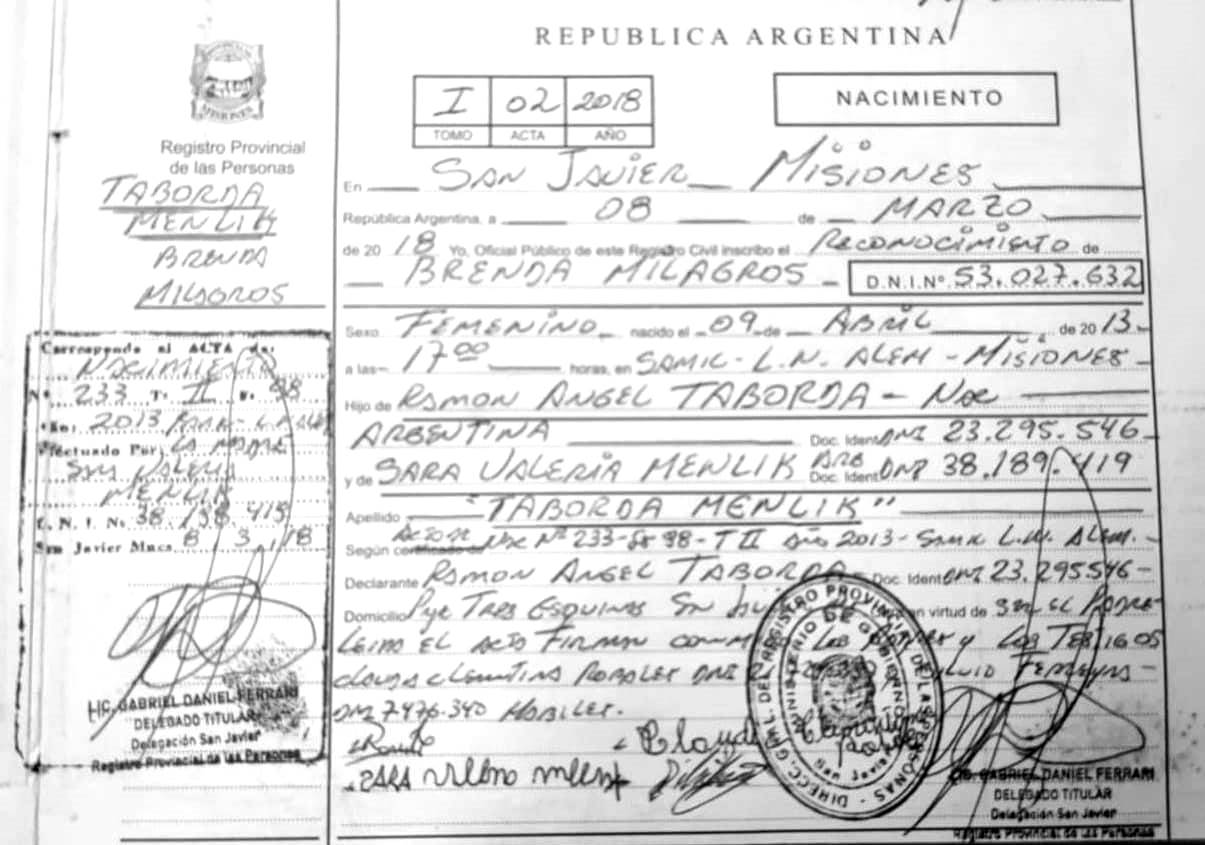 REPUBLICA ARGENTINA
I 02 2018
TOMO ACTA AÑO
NACIMIENTO
MISIONES
Registro Provincial
de las Personas
TABORDA
MENLIK
BRENDA
MILAGROS
En SAN JAVIER MISIONES
República Argentina, a 08 de MARZO
de 20 18 Yo, Oficial Público de este Registro Civil inscribo el RECONOCIMIENTO de
BRENDA MILAGROS D.N.I.Nº 53.027.632
Sexo FEMENINO nacido el 09 de ABRIL de 20 13
a las 17 00 horas, en SAMIC - L.N. ALEM - MISIONES
Hijo de RAMON ANGEL TABORDA - Nac
ARGENTINA Doc. Ident DNI 23.295.546
y de SARA VALERIA MENLIK ARG Doc. Ident DNI 38.189.419
Apellido "TABORDA MENLIK"
Según certificado de Nac Nº 233 - Fº 98 - T II Año 2013 - SAMIC L.N. ALEM.
Declarante RAMON ANGEL TABORDA Doc. Ident DNI 23.295546
Domicilio TRES ESQUINAS en virtud de SER EL PADRE
LEIDA EL ACTA FIRMAN LOS TESTIGOS
CLEMENTINA DNI
DNI 7476.340
Corresponde al ACTA de:
NACIMIENTO
Nº 233 T. II F. 98
Año: 2013
Efectuado Por: LA MADRE
VALERIA
MENLIK
D. N. I. Nº 38
San Javier Mnes. 8 3 18
LIC. GABRIEL DANIEL FERRARI
DELEGADO TITULAR
Delegación San Javier
Registro Provincial de las Personas
SARA
DIRECC. GRAL. DEL REGISTRO PROVINCIAL DE LAS PERSONAS
MINISTERIO DE GOBIERNO
San Javier
LIC. GABRIEL DANIEL FERRARI
DELEGADO TITULAR
Delegación San Javier
Registro Provincial de las Personas